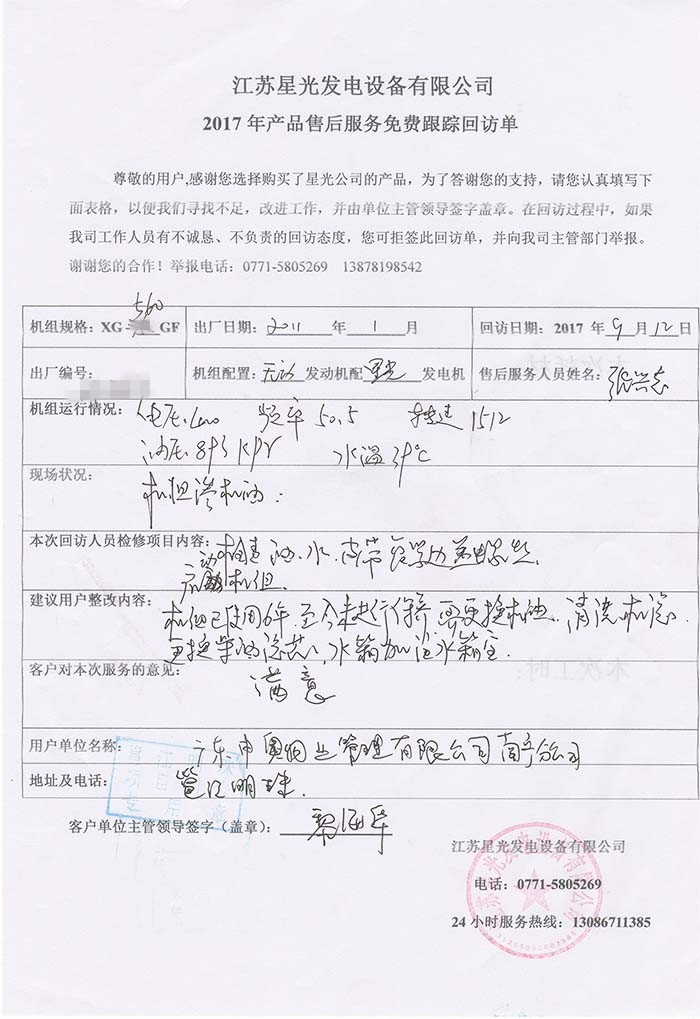 江苏星光发电设备有限公司
2017 年产品售后服务免费跟踪回访单
尊敬的用户,感谢您选择购买了星光公司的产品，为了答谢您的支持，请您认真填写下
面表格，以便我们寻找不足，改进工作，并由单位主管领导签字盖章。在回访过程中，如果
我司工作人员有不诚恳、不负责的回访态度，您可拒签此回访单，并向我司主管部门举报。
谢谢您的合作！举报电话：0771-5805269 13878198542
机组规格：XG-560 GF 出厂日期：2011 年 1 月 回访日期：2017 年 9 月 12 日
出厂编号： 机组配置：无动 发动机配 星光 发电机 售后服务人员姓名：张兴志
机组运行情况：电压 400 频率 50.5 转速 1512
油压 KPa 水温 39℃
现场状况：
机组渗机油.
本次回访人员检修项目内容： 油、水、皮带
启动机组.
建议用户整改内容：
机组已使用6年，至今未进行保养 要更换机油、清洗机滤
更换柴油滤芯，水箱加注水箱宝
客户对本次服务的意见：
满意
用户单位名称：广东中奥物业管理有限公司南宁分公司
地址及电话：邕江明珠
客户单位主管领导签字（盖章）：
江苏星光发电设备有限公司
电话：0771-5805269
24 小时服务热线：13086711385